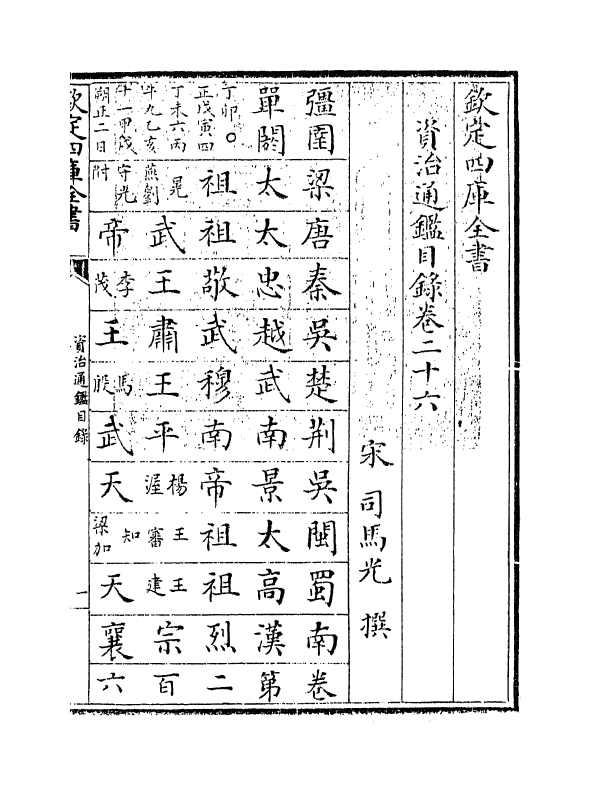 欽定四庫全書
資治通鑑目錄卷二十六
宋 司馬光 撰
彊圉 梁 唐 秦 吳 楚 荆 吳 閩 蜀 南 卷
單閼 太 太 忠 越 武 南 景 太 高 漢 第
丁卯○ 正戊寅四 祖 祖 敬 武 穆 南 帝 祖 祖 烈 二
丁未六丙 午九乙亥 晃 燕劉 武 王 肅 王 平 楊渥 王審知 王建 宗 百
十一甲戌 朔正二日 守光 附 帝 李茂 王 馬殷 武 天 梁加 天 襄 六
欽定四庫全書
資治通鑑目錄
一